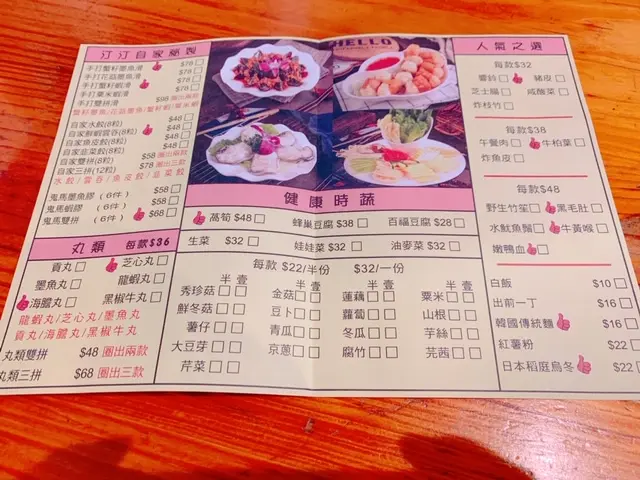 汀汀自家秘製
手打蟹籽墨魚滑 $78
手打花甌墨魚滑 $78
手打蟹籽蝦滑 $78
手打粟米蝦滑 $78
手打雙拼滑 $98 圈出兩款
自家水餃(8粒) $48
自家鮮蝦雲吞(8粒) $48
自家魚皮餃(8粒) $48
自家韭菜餃(8粒) $48
自家雙拼(8粒) $58 圈出兩款
自家三拼(12粒) $78 圈出三款
水餃/雲吞/魚皮餃/韭菜餃
鬼馬墨魚膠(6件) $58
鬼馬蝦膠(6件) $58
鬼馬雙拼(6件) $68
丸類 每款$36
貢丸 芝心丸
墨魚丸 龍蝦丸
海膽丸 黑椒牛丸
龍蝦丸/芝心丸/墨魚丸
貢丸/海膽丸/黑椒牛丸
丸類雙拼 $48 圈出兩款
丸類三拼 $68 圈出三款
HELLO
健康時蔬
萵筍 $48 蜂巢豆腐 $38 百福豆腐 $28
生菜 $32 娃娃菜 $32 油麥菜 $32
每款 $22/半份 $32/一份
半 壹 半 壹 半 壹 半 壹
秀珍菇 金菇 蓮藕 粟米
鮮冬菇 豆卜 蘿蔔 山根
薯仔 青瓜 冬瓜 芋絲
大豆芽 京蔥 腐竹 芫茜
芹菜
人氣之選
每款$32
響鈴 豬皮
芝士腸 咸酸菜
炸枝竹
每款$38
午餐肉 牛柏葉
炸魚皮
每款$48
野生竹笙 黑毛肚
水魷魚鬚 牛黃喉
嫩鴨血
白飯 $10
出前一丁 $16
韓國傳統麵 $16
紅薯粉 $22
日本稻庭烏冬 $22